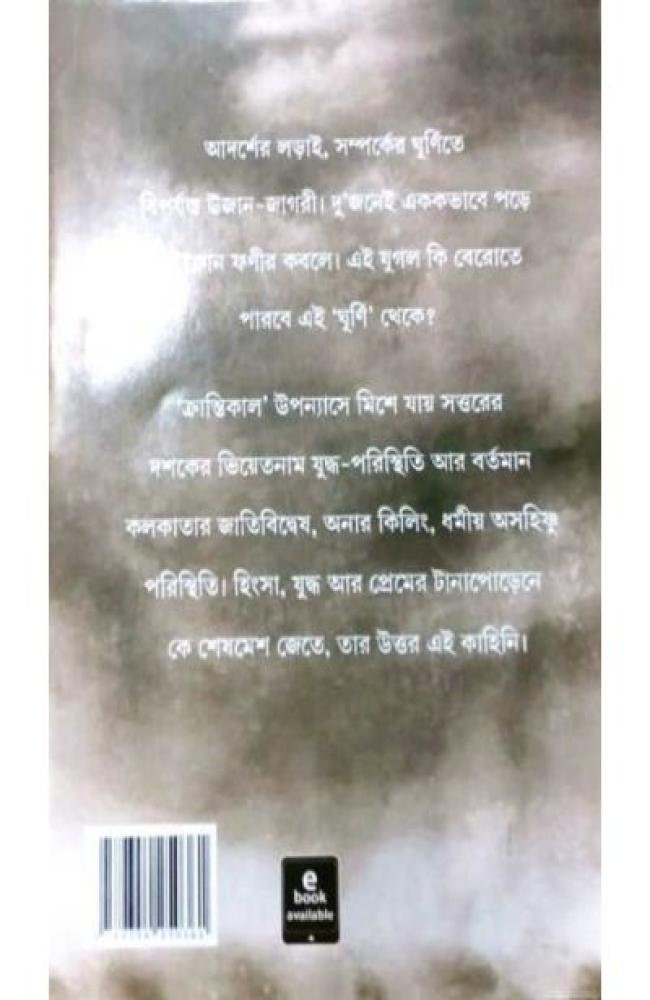 আদর্শের লড়াই, সম্পর্কের ঘূর্ণিতে
বিপর্যস্ত উজান-জাগরী। দু'জনেই এককভাবে পড়ে
ফণীর কবলে। এই যুগল কি বেরোতে
পারবে এই 'ঘূর্ণি' থেকে?
'ক্রান্তিকাল' উপন্যাসে মিশে যায় সত্তরের
দশকের ভিয়েতনাম যুদ্ধ-পরিস্থিতি আর বর্তমান
কলকাতার জাতিবিদ্বেষ, অনার কিলিং, ধর্মীয় অসহিষ্ণু
পরিস্থিতি। হিংসা, যুদ্ধ আর প্রেমের টানাপোড়েনে
কে শেষমেশ জেতে, তার উত্তর এই কাহিনি।
e
book
available